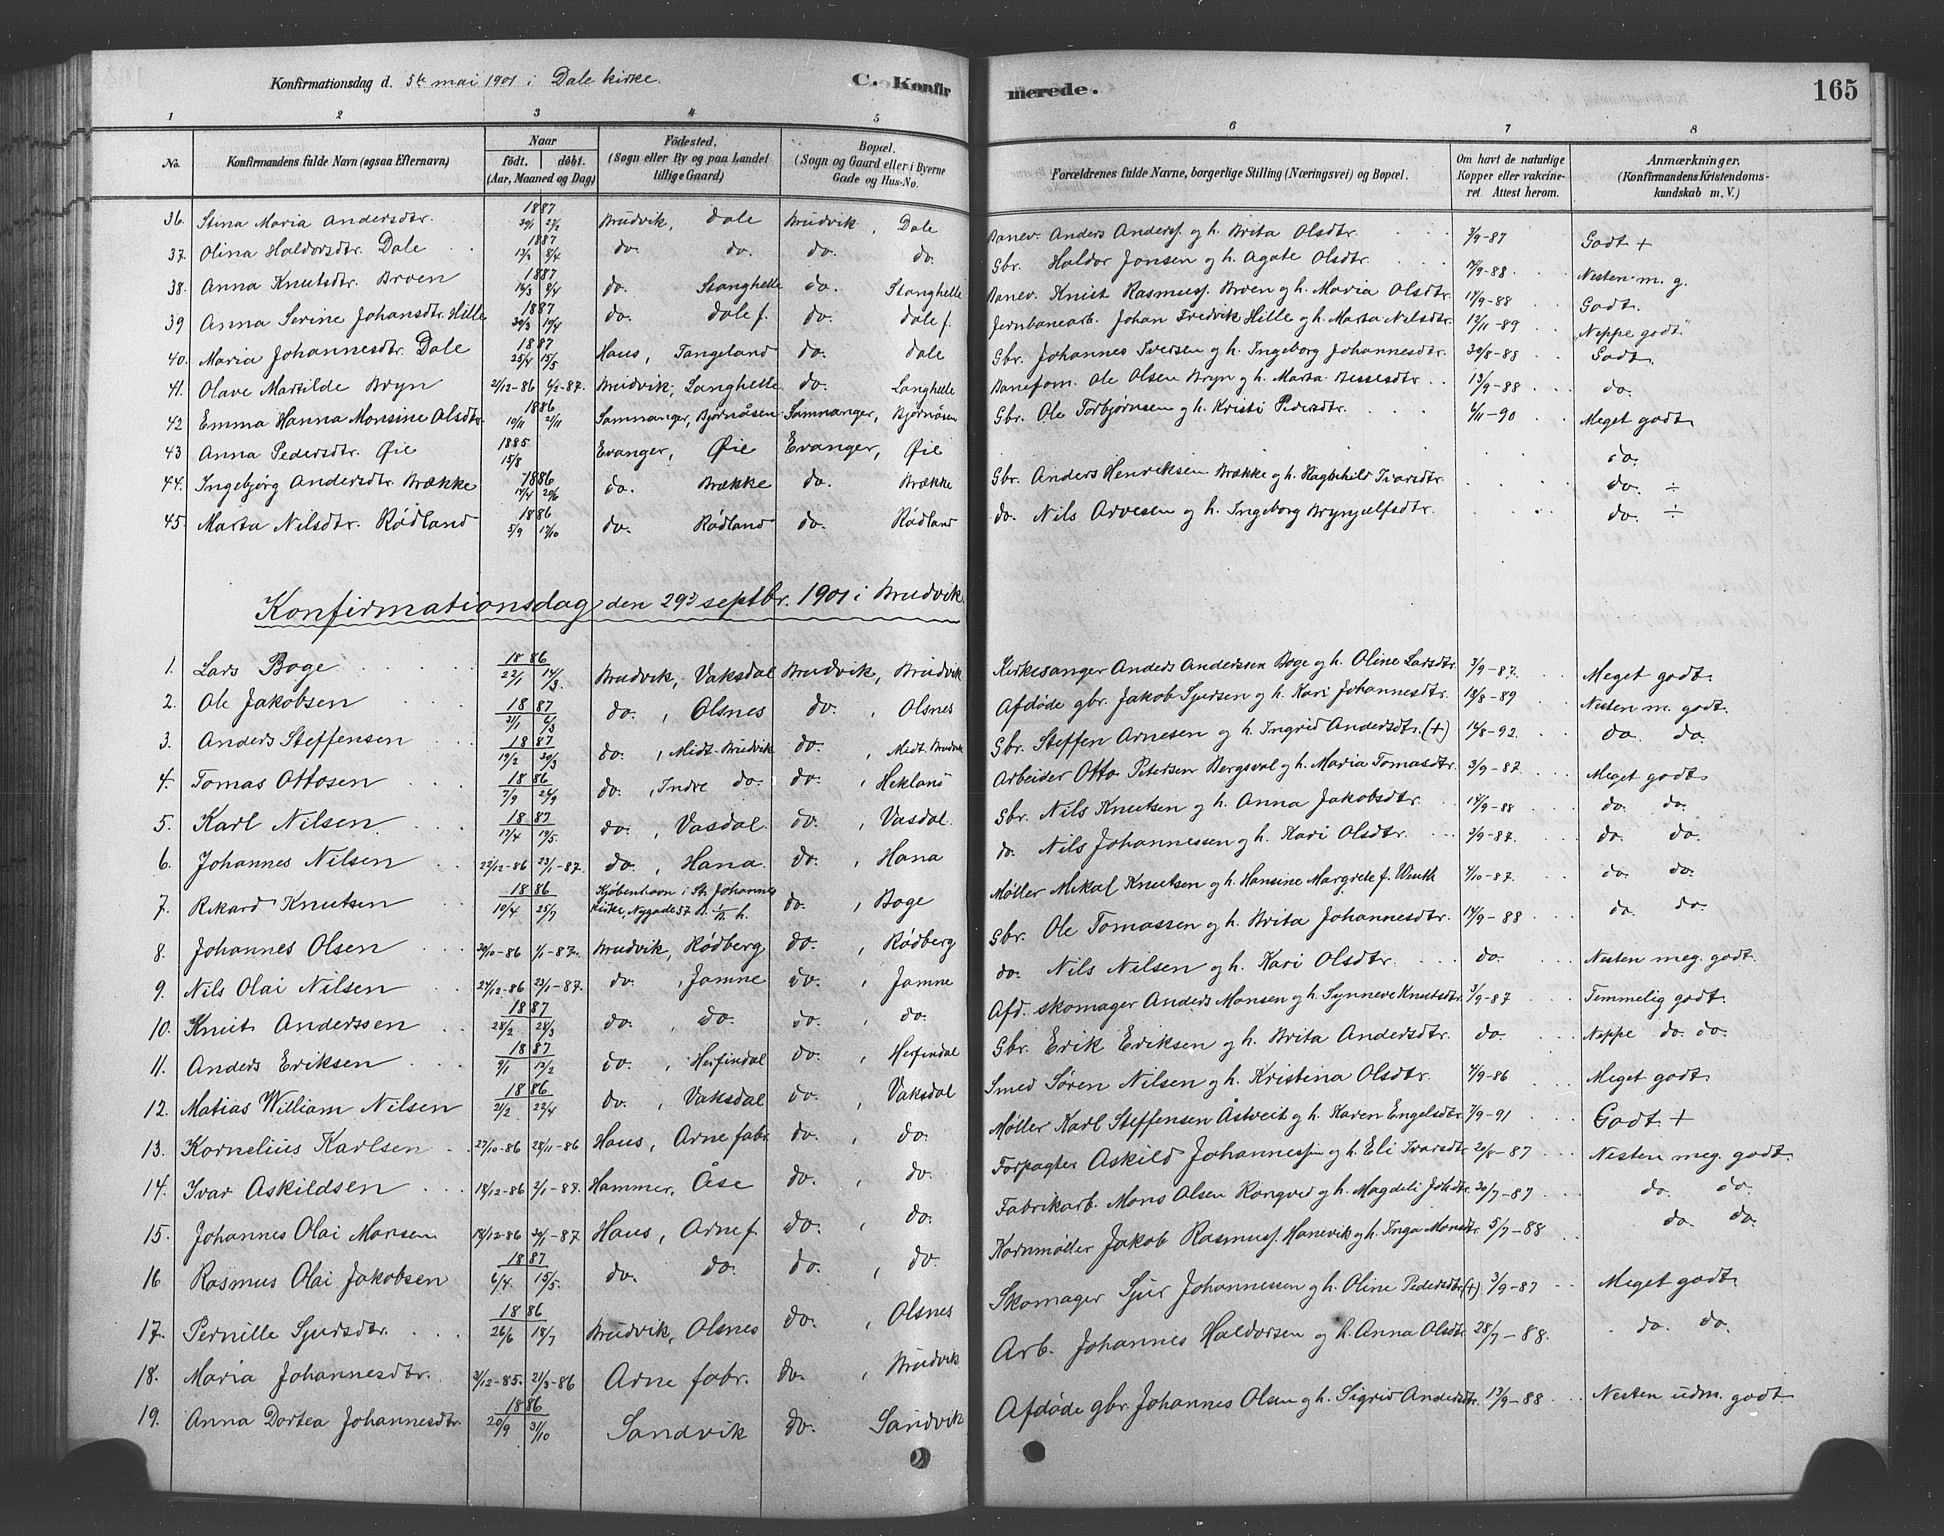 Konfirmationsdag d. 5te mai 1901 i Dale kirke. C. Konfir merede. 165
1 2 3 4 5 6 7 8
No. Konfirmandens fulde Navn (ogsaa Efternavn) Naar født. døbt. (Aar, Maaned og Dag) Fødested. (Sogn eller By og paa Landet tillige Gaard) Bopæl. (Sogn og Gaard eller i Byerne Gade og Hus-No. Forældrenes fulde Navne, borgerlige Stilling (Næringsvei) og Bopæl. Om havt de naturlige Kopper eller vakcineret. Attest herom. Anmærkninger. (Konfirmandens Kristendomskundskab m. V.)
36. Stina Maria Andersdtr. 1887 27/2 Brudvik, Dale Brudvik, Dale Banev. Anders Anderss. og h. Brita Olsdtr. 3/9-87 Godt +
37. Olina Haldorsdtr. Dale 1887 13/2 8/4 do. do. do. do. Gbr. Haldor Jonsen og h. Agate Olsdtr. 14/9-88 Nesten m. g.
38. Anna Knutsdtr. Broen 1887 14/3 8/4 do. Stanghelle do. Stanghelle Banev. Knut Rasmuss. Broen og h. Maria Olsdtr. 14/9-88 Godt.
39 Anna Serine Johansdtr. Hille 1887 30/3 19/4 do. Dale f. do. Dale f. Jernbanearb. Johan Fredrik Hille og h. Marta Nilsdtr. 12/11-89 Neppe godt.
40. Maria Johannesdtr. Dale 1887 25/4 15/5 Haus, Tangeland do. Dale Gbr. Johannes Iversen og h. Ingeborg Johannesdtr. 30/8-88 Godt.
41. Olave Martilde Bryn 21/12-86 6/2-87. Brudvik, Langhelle do. Langhelle Baneform. Ole Olsen Bryn og h. Marta Bessesdtr. 13/9-88 do.
42 Emma Hanna Monsine Olsdtr. 1886 10/11 21/11 Samnanger, Bjørnåsen Samnanger, Bjørnåsen Gbr. Ole Torbjørnsen og h. Kristi Pedersdtr. 6/11-90 Meget godt
43 Anna Pedersdtr. Øie 1885 15/8 Evanger, Øie Evanger, Øie do.
44. Ingebjørg Andersdtr. Brække 1886 14/4 20/6 do. Brække do. Brække Gbr. Anders Henriksen Brække og h. Ragnhild Ivarsdtr. do. ÷
45. Marta Nilsdtr. Rødland 1886 5/9 17/10 do. Rødland do. Rødland do. Nils Arvesen og h. Ingeborg Brynjulfsdtr. do. ÷
Konfirmationsdag den 29d septbr. 1901 i Brudvik.
1. Lars Boge 1886 22/1 14/3. Brudvik, Vaksdal Brudvik, Brudvik Kirkesanger Anders Anderssen Boge og h. Oline Larsdtr. 3/9-87. Meget godt.
2. Ole Jakobsen 1887 31/1 6/3 do., Olsnes do., Olsnes Afdøde gbr. Jakob Sjursen og h. Kari Johannesdtr. 18/8-89 Nesten m. godt.
3. Anders Steffensen 1887 19/2 20/3 do., Midt-Brudvik do., Midt-Brudvik Gbr. Steffen Arnesen og h. Ingrid Andersdtr. (+) 14/8-92 do. do.
4. Tomas Ottosen 1886 7/9 26/9 do., Indre do. do., Heklanö Arbeider Otto Petersen Bergsvol og h. Maria Tomasdtr. 3/9-87. Meget godt
5. Karl Nilsen 1887 17/4 19/5. do., Vasdal. do., Vasdal. Gbr. Nils Knutsen og h. Anna Jakobsdtr. 14/9-88 do. do.
6. Johannes Nilsen 22/12-86 23/1-87. do., Hana. do., Hana do. Nils Johannessen og h. Kari Olsdtr. 3/9-87. do. do.
7. Rikard Knutsen 1886 19/4 25/7 Kjøbenhavn i St. Johannes kirke, Nygade 37 do., Boge Møller Mikal Knutsen og h. Hansine Margrete f. Wenth 4/10-87. do. do.
8. Johannes Olsen 30/10-86 1/1-87. Brudvik, Rødberg do., Rødberg Gbr. Ole Tomassen og h. Brita Johannesdtr. 14/9-88 do. do.
9. Nils Olai Nilsen 24/12-86 23/1-87. do., Jamne do., Jamne do. Nils Nilsen og h. Kari Olsdtr. do. Nesten meg. godt.
10. Knut Anderssen 1887 28/2. 28/3 do., do. do., do. Afd. skomager Anders Monsen og h. Synneve Knutsdtr. 3/9-87 Temmelig godt.
11. Anders Eriksen 1887 9/1 13/2 do., Herfindal do., Herfindal Gbr. Erik Eriksen og h. Brita Andersdtr. do. Neppe do. do.
12. Matias William Nilsen 1886 21/2 22/4 do., Vaksdal do., Vaksdal Smed Søren Nilsen og h. Kristina Olsdtr. 4/9-86 Meget godt.
13. Kornelius Karlsen 27/10-86 28/11-86 Haus, Arne fabr. do., do. Møller Karl Steffensen Åstveit og h. Karen Engelsdtr. 7/9-91 Godt. +
14. Ivar Askildsen 18/12-86 2/1-87. Hammer, Åse do., do. Forpagter Askild Johannessen og h. Eli Ivarsdtr. 26/8-87 Nesten meg. godt.
15. Johannes Olai Monsen 18/12-86 30/1-87 Haus, Arne f. do., do. Fabrikarb. Mons Olsen Rongved og h. Magdeli Johsdtr. 30/7-87 do. do.
16 Rasmus Olai Jakobsen 1887 6/4. 15/5. do. do. do., do. Kornmøller Jakob Rasmuss. Hanevik og h. Inga Monsdtr. 5/7-88 do. do.
17. Pernille Sjursdtr. 1886 26/6 18/7 Brudvik, Olsnes do., Olsnes Skomager Sjur Johannessen og h. Oline Pedersdtr. (+) 3/9-87 Meget godt.
18. Maria Johannesdtr. 31/12-85. 21/3-86 Arne fabr. do., Brudvik Arb. Johannes Haldorsen og h. Anna Olsdtr. 28/7-88. do. do.
19. Anna Dortea Johannesdtr. 1886 20/9 31/10 Sandvik do. Sandvik Afdøde gbr. Johannes Olsen og h. Sigrid Andersdtr. 13/9-88 Nesten udm. godt